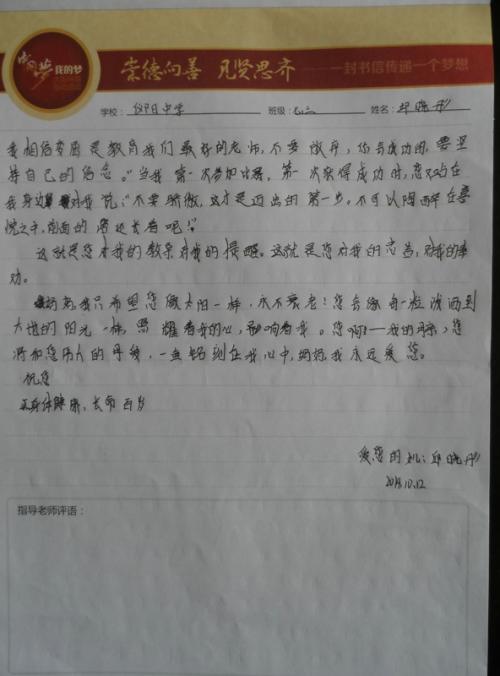 中国梦 我的梦
崇德向善 见贤思齐 ——一封书信传递一个梦想
学校: 中学 班级: 姓名: 晓彤
我相信苦难是教育我们最好的老师,不要放弃,你会成功的,要坚
持自己的信念。"当我第一次参加比赛,第一次获得成功时,您又站在
我身边对我说:"不要骄傲,这才是迈出的第一步。不可以陶醉在喜
悦之中,前面的路还长着呢!"
这就是您对我的教亲对我的提醒。这就是您对我的忠告,对我的奉
劝。
妈妈我只希望您像太阳一样,永不衰老!您会像每一粒洒到
大地的阳光一样,照耀着我的心,影响着我。您啊!——我的母亲,您
将和您伟大的母爱,一直铭刻在我心中,妈妈我永远爱您。
祝您
身体健康,长命百岁
爱您的 晓彤
10.12
指导老师评语: